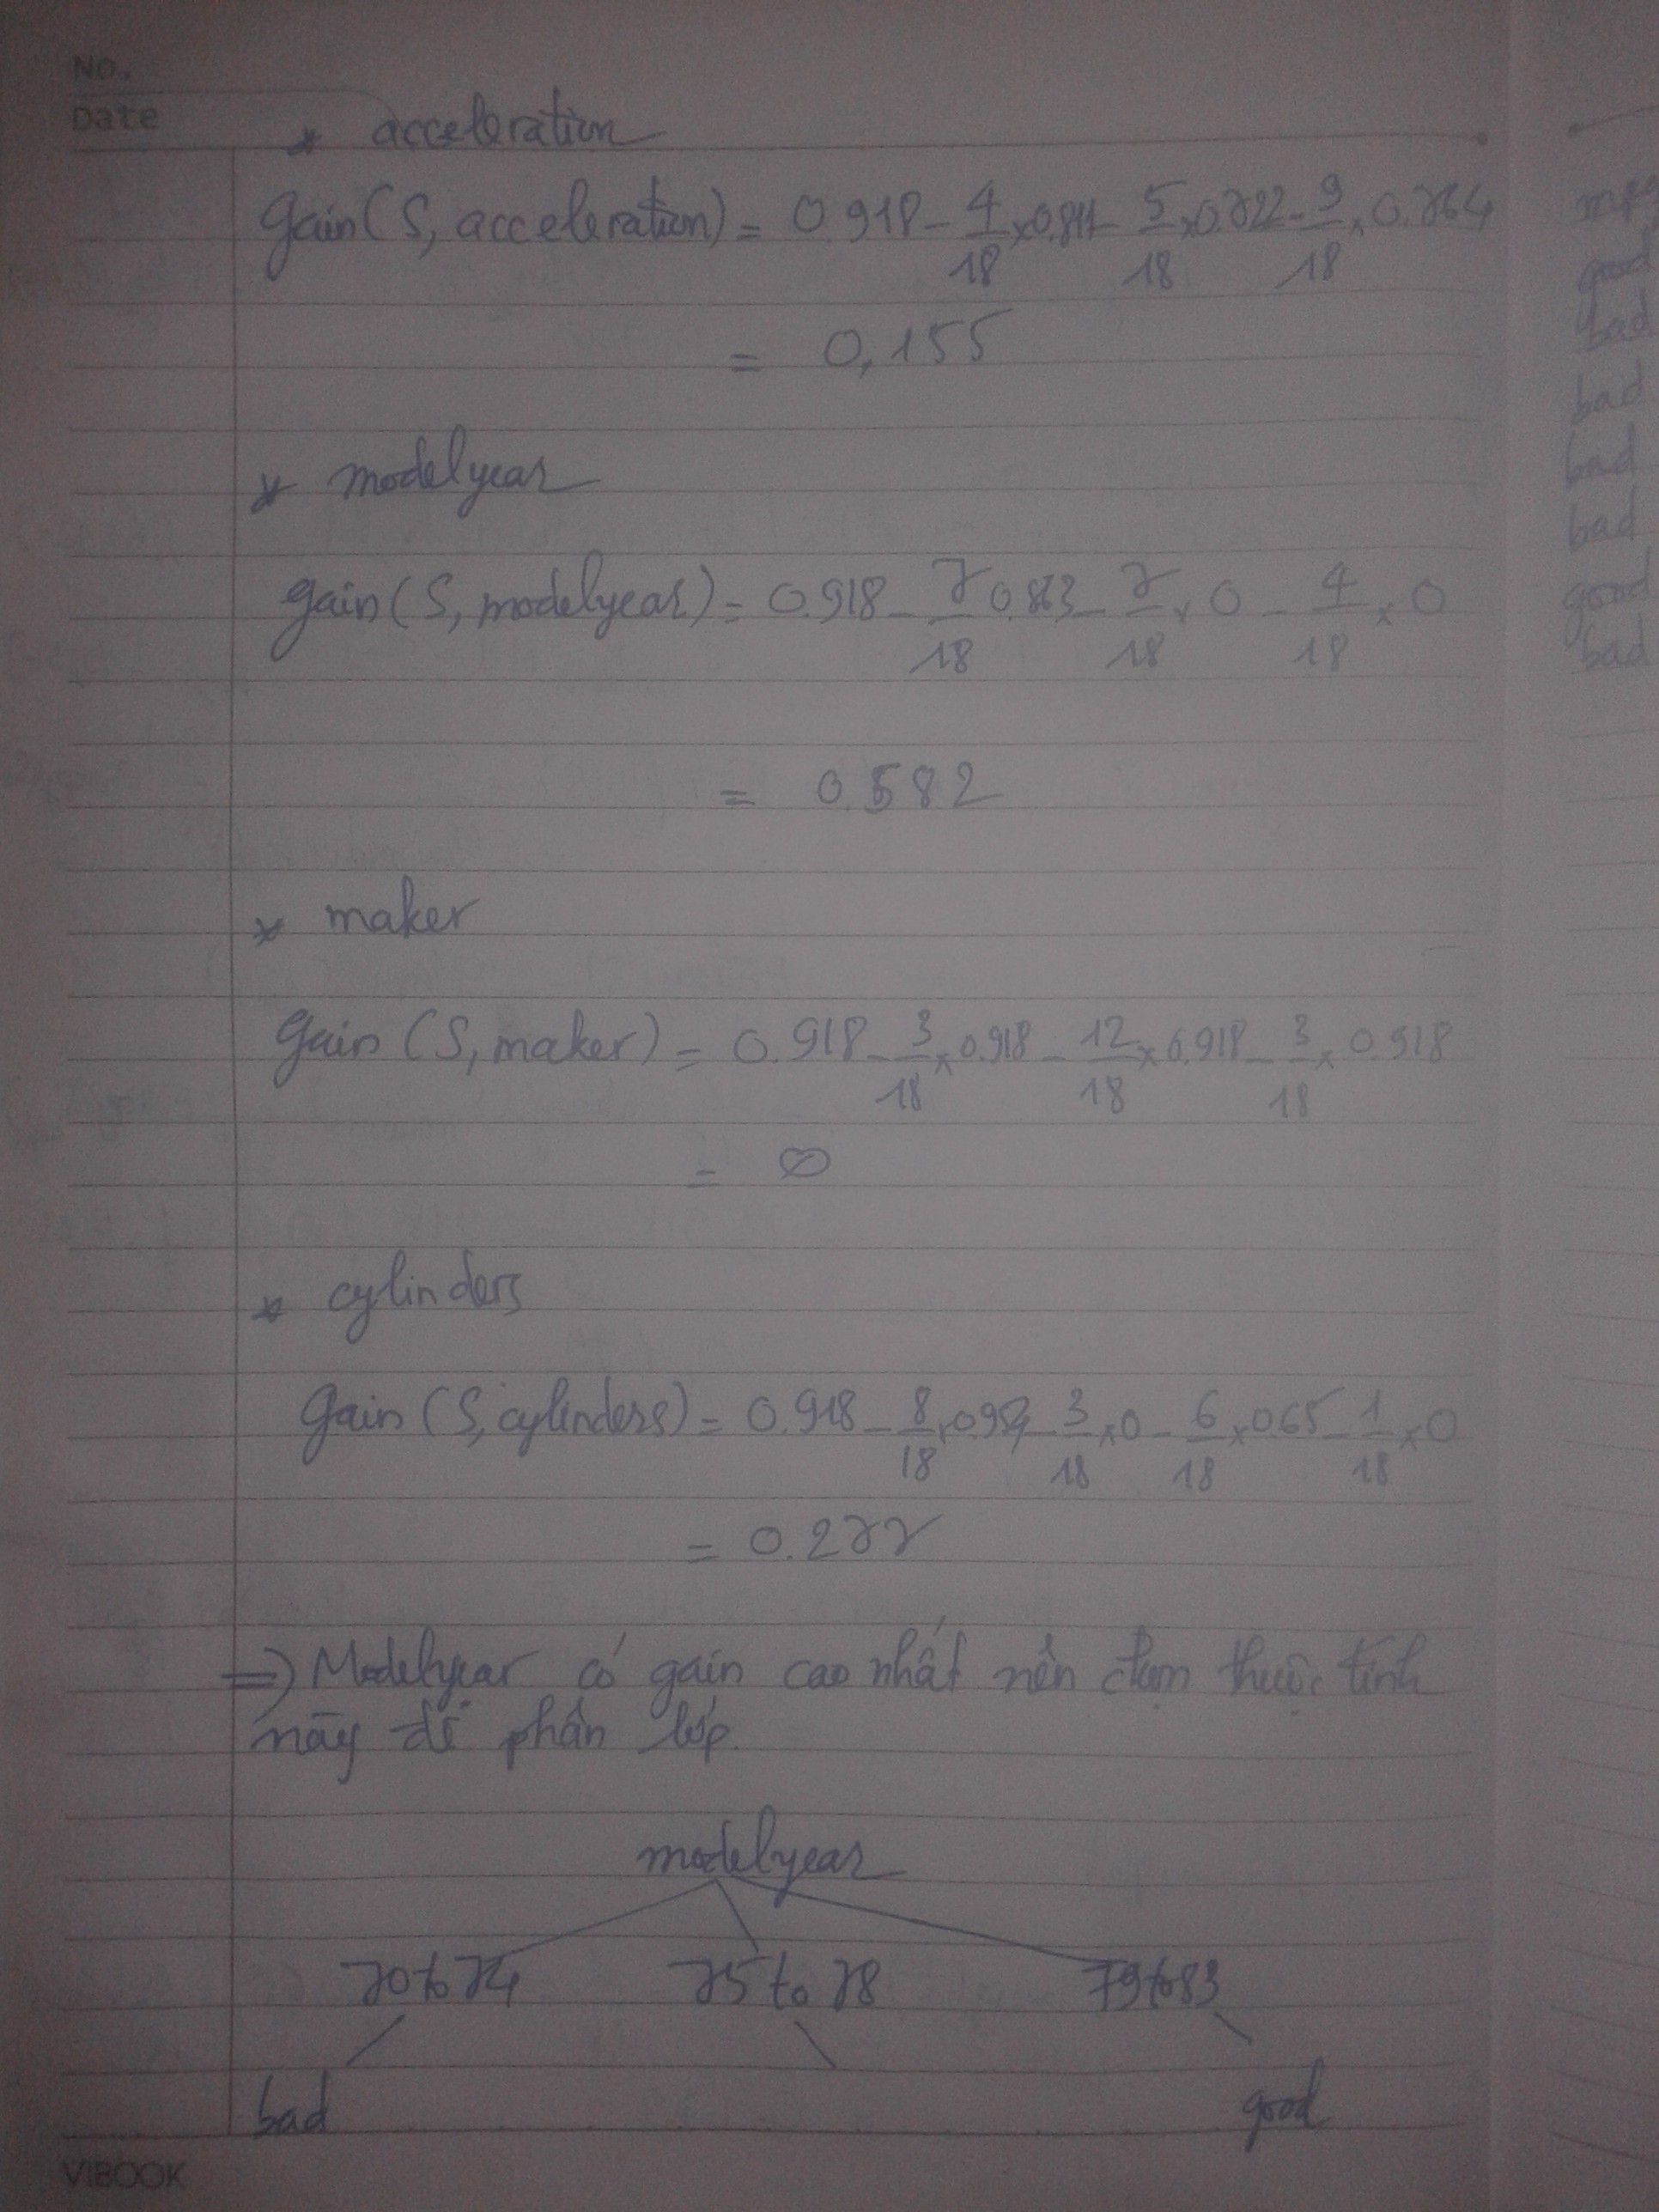 No.
Date
* acceleration
Gain(S, acceleration) = 0.918 - 4/18 x 0.811 - 5/18 x 0.722 - 9/18 x 0.764
= 0,155
* modelyear
Gain(S, modelyear) = 0.918 - 7/18 0.863 - 7/18 x 0 - 4/18 x 0
= 0.582
* maker
Gain (S, maker) = 0.918 - 3/18 x 0.918 - 12/18 x 0.918 - 3/18 x 0.918
= ∞
* cylinders
Gain (S, cylinders) = 0.918 - 8/18 x 0.954 - 3/18 x 0 - 6/18 x 0.65 - 1/18 x 0
= 0.277
=> Modelyear có gain cao nhất nên chọn thuộc tính
này để phân lớp.
modelyear
70 to 74 75 to 78 79 to 83
bad good
VIBOOK
mpg
good
bad
bad
bad
bad
good
bad